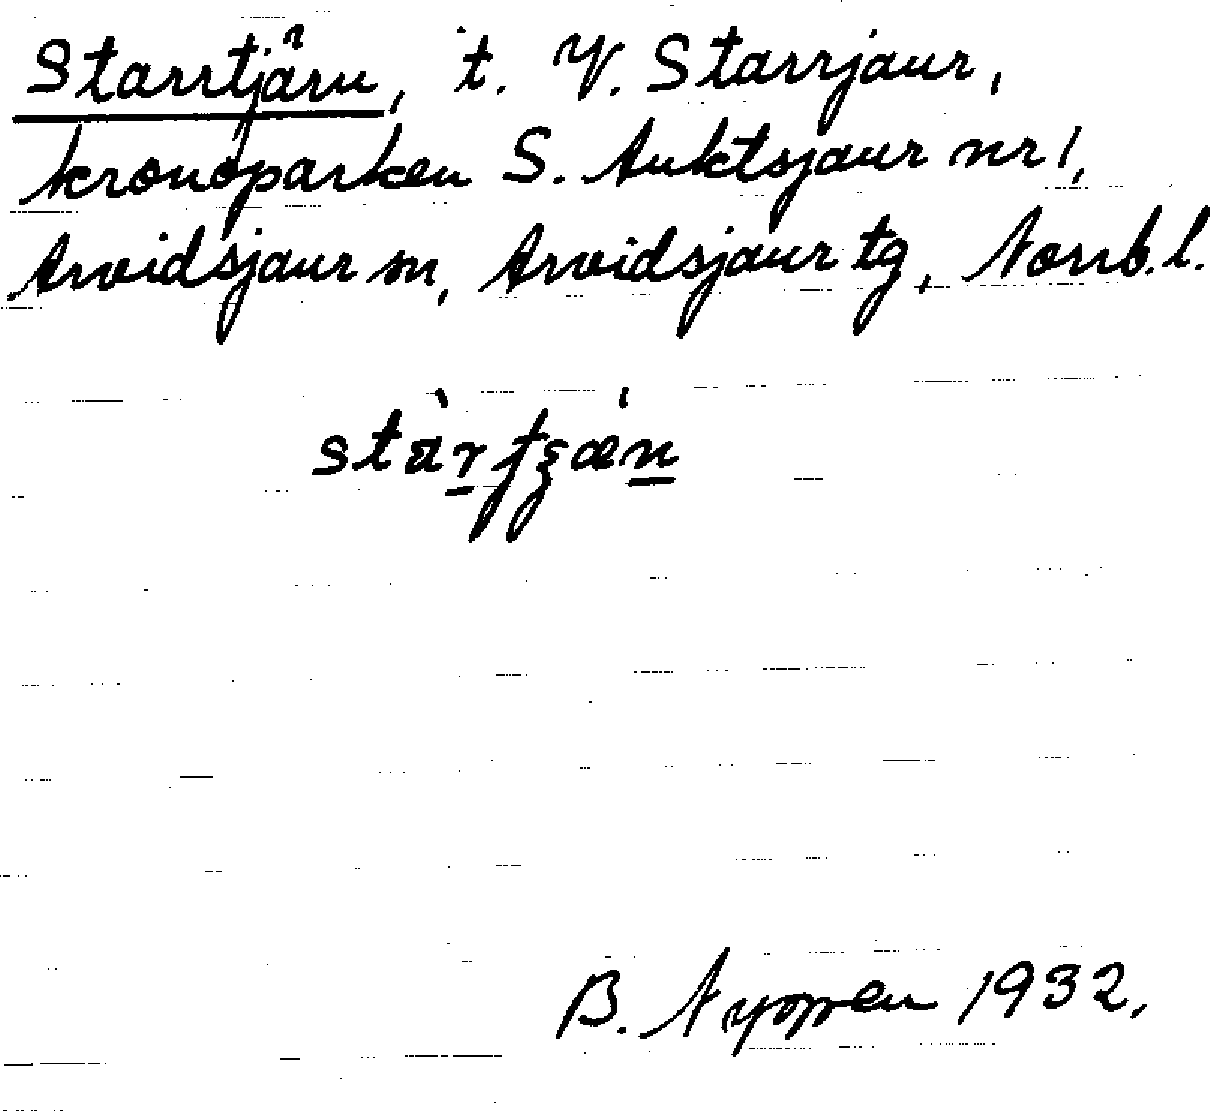 Starrtjärn, t. V. Starrjaur,
kronoparken S. Auktsjaur nr 1,
Arvidsjaur sn, Arvidsjaur tg, Norrb. l.
B. Nyman 1932.